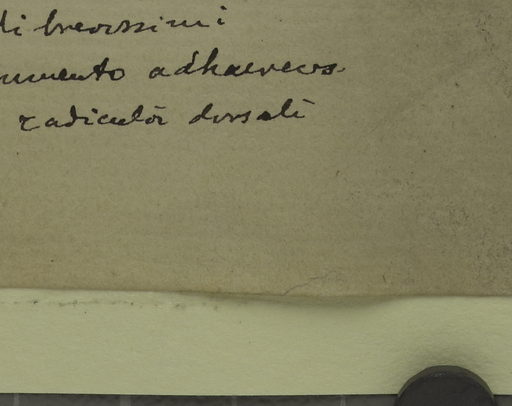 di brevissimi
umento adhaerens
radiculâ dorsali